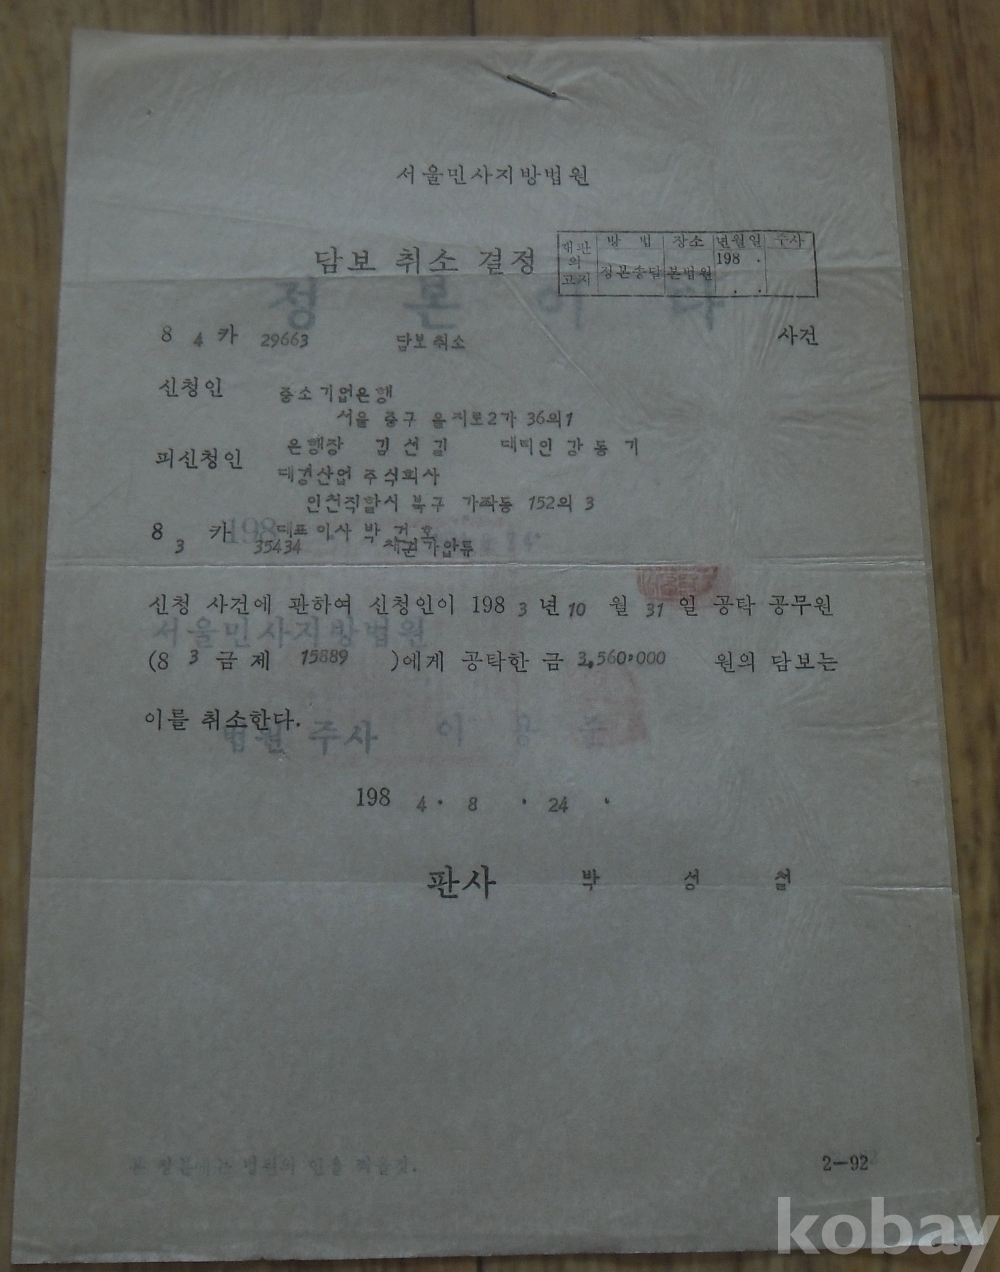 서울민사지방법원
담보 취소 결정
재판의 고지 방법 장소 년월일 주사
정본송달 본법원 198 . . .
정 본 이 다
8 4 카 29663 담보취소 사건
신청인 중소기업은행
서울 중구 을지로2가 36의1
은행장 김 선 길 대리인 강 동 기
피신청인 대경산업 주식회사
인천직할시 북구 가좌동 152의 3
대표이사 박 건 호
8 3 카 35434 채권가압류
198
신청 사건에 관하여 신청인이 198 3 년 10 월 31 일 공탁 공무원
서울민사지방법원
(8 3 금 제 15889 )에게 공탁한 금 3,560,000 원의 담보는
이를 취소한다.
법원 주사 이 용 준
198 4 . 8 . 24 .
판사 박 성 철
본 정본에는 법원의 인을 찍을것.
2-92
kobay